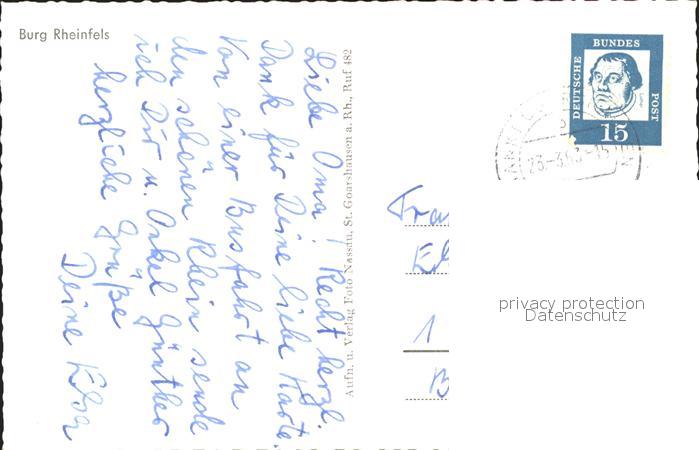 Burg Rheinfels
Liebe Oma! Recht herzl.
Dank für Deine liebe Karte.
Von einer Busfahrt an
den schönen Rhein sende
ich Dir u. Onkel Günther
herzliche Grüße
Deine Elsa
Aufn. u. Verlag Foto Nassau, St. Goarshausen a. Rh., Ruf 482
DEUTSCHE
BUNDES
POST
15
23.-3.63-15
Fra
1
B
privacy protection
Datenschutz